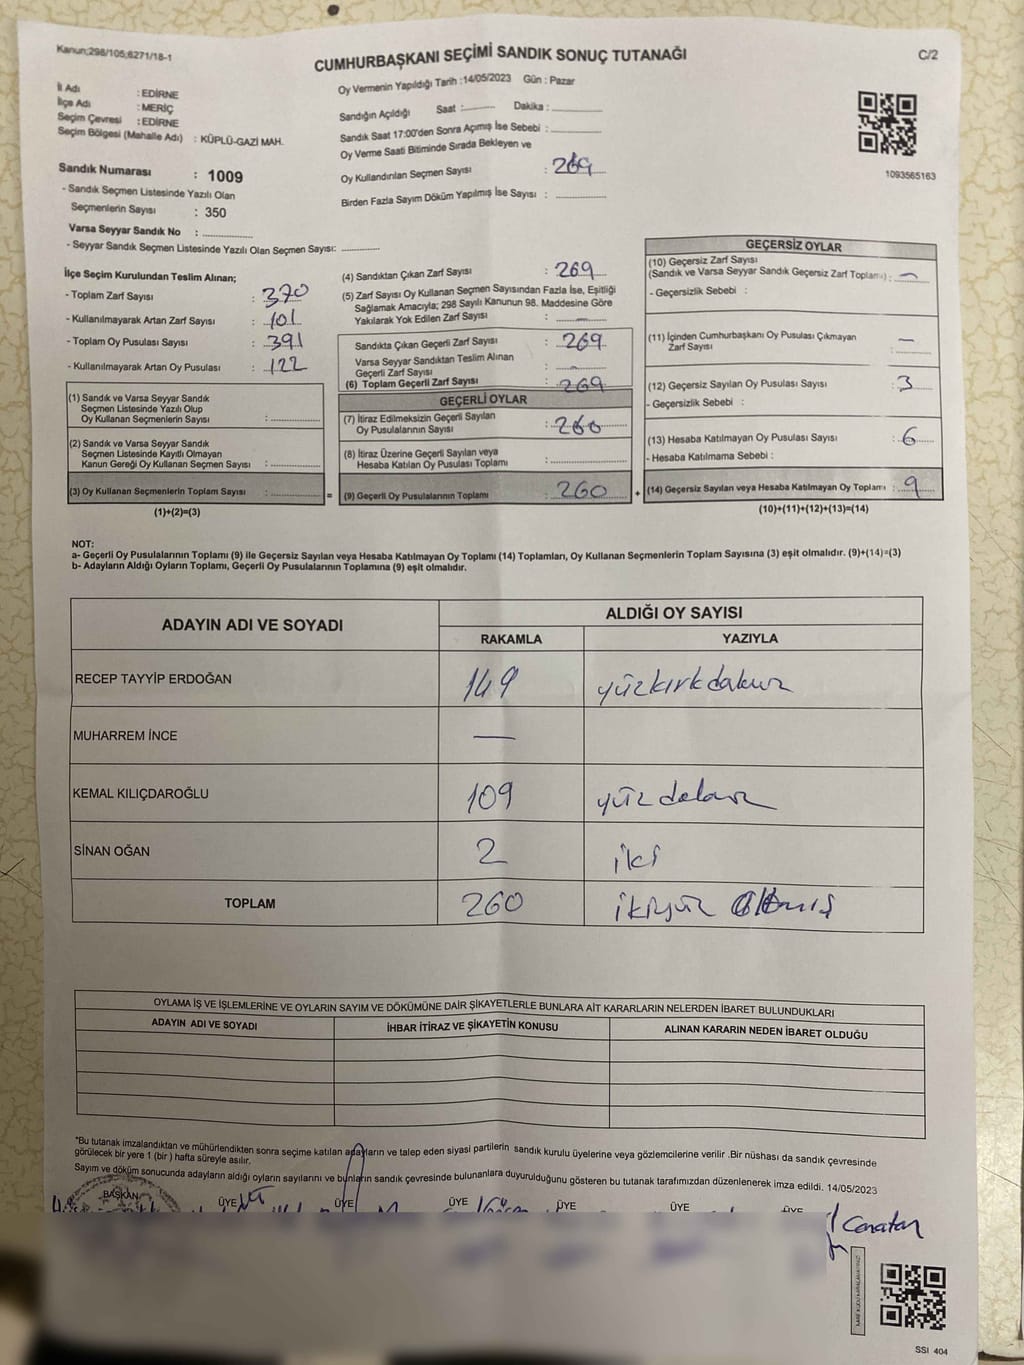 Kanun;298/105;6271/18-1
CUMHURBAŞKANI SEÇİMİ SANDIK SONUÇ TUTANAĞI
C/2
İl Adı : EDİRNE
İlçe Adı : MERİÇ
Seçim Çevresi : EDİRNE
Seçim Bölgesi (Mahalle Adı) : KÜPLÜ-GAZİ MAH.
Sandık Numarası : 1009
- Sandık Seçmen Listesinde Yazılı Olan
Seçmenlerin Sayısı : 350
Varsa Seyyar Sandık No :
- Seyyar Sandık Seçmen Listesinde Yazılı Olan Seçmen Sayısı:
Oy Vermenin Yapıldığı Tarih :14/05/2023 Gün : Pazar
Sandığın Açıldığı Saat : Dakika :
Sandık Saat 17:00'den Sonra Açımış İse Sebebi :
Oy Verme Saati Bitiminde Sırada Bekleyen ve
Oy Kullandırılan Seçmen Sayısı : 269
Birden Fazla Sayım Döküm Yapılmış İse Sayısı :
1093565163
İlçe Seçim Kurulundan Teslim Alınan;
- Toplam Zarf Sayısı : 370
- Kullanılmayarak Artan Zarf Sayısı : 101
- Toplam Oy Pusulası Sayısı : 391
- Kullanılmayarak Artan Oy Pusulası : 122
(1) Sandık ve Varsa Seyyar Sandık
Seçmen Listesinde Yazılı Olup
Oy Kullanan Seçmenlerin Sayısı :
(2) Sandık ve Varsa Seyyar Sandık
Seçmen Listesinde Kayıtlı Olmayan
Kanun Gereği Oy Kullanan Seçmen Sayısı :
(3) Oy Kullanan Seçmenlerin Toplam Sayısı :
(1)+(2)=(3)
(4) Sandıktan Çıkan Zarf Sayısı : 269
(5) Zarf Sayısı Oy Kullanan Seçmen Sayısından Fazla İse, Eşitliği
Sağlamak Amacıyla; 298 Sayılı Kanunun 98. Maddesine Göre
Yakılarak Yok Edilen Zarf Sayısı : —
Sandıkta Çıkan Geçerli Zarf Sayısı : 269
Varsa Seyyar Sandıktan Teslim Alınan
Geçerli Zarf Sayısı : —
(6) Toplam Geçerli Zarf Sayısı : 269
GEÇERLİ OYLAR
(7) İtiraz Edilmeksizin Geçerli Sayılan
Oy Pusulalarının Sayısı : 260
(8) İtiraz Üzerine Geçerli Sayılan veya
Hesaba Katılan Oy Pusulası Toplamı :
= (9) Geçerli Oy Pusulalarının Toplamı : 260
GEÇERSİZ OYLAR
(10) Geçersiz Zarf Sayısı
(Sandık ve Varsa Seyyar Sandık Geçersiz Zarf Toplamı) : —
- Geçersizlik Sebebi :
(11) İçinden Cumhurbaşkanı Oy Pusulası Çıkmayan
Zarf Sayısı : —
(12) Geçersiz Sayılan Oy Pusulası Sayısı : 3
- Geçersizlik Sebebi :
(13) Hesaba Katılmayan Oy Pusulası Sayısı : 6
- Hesaba Katılmama Sebebi :
+ (14) Geçersiz Sayılan veya Hesaba Katılmayan Oy Toplamı : 9
(10)+(11)+(12)+(13)=(14)
NOT:
a- Geçerli Oy Pusulalarının Toplamı (9) ile Geçersiz Sayılan veya Hesaba Katılmayan Oy Toplamı (14) Toplamları, Oy Kullanan Seçmenlerin Toplam Sayısına (3) eşit olmalıdır. (9)+(14)=(3)
b- Adayların Aldığı Oyların Toplamı, Geçerli Oy Pusulalarının Toplamına (9) eşit olmalıdır.
ADAYIN ADI VE SOYADI ALDIĞI OY SAYISI
RAKAMLA YAZIYLA
RECEP TAYYİP ERDOĞAN 149 yüzkırkdokuz
MUHARREM İNCE —
KEMAL KILIÇDAROĞLU 109 yüz dokuz
SİNAN OĞAN 2 iki
TOPLAM 260 ikiyüz altmış
OYLAMA İŞ VE İŞLEMLERİNE VE OYLARIN SAYIM VE DÖKÜMÜNE DAİR ŞİKAYETLERLE BUNLARA AİT KARARLARIN NELERDEN İBARET BULUNDUKLARI
ADAYIN ADI VE SOYADI İHBAR İTİRAZ VE ŞİKAYETİN KONUSU ALINAN KARARIN NEDEN İBARET OLDUĞU
*Bu tutanak imzalandıktan ve mühürlendikten sonra seçime katılan adayların ve talep eden siyasi partilerin sandık kurulu üyelerine veya gözlemcilerine verilir .Bir nüshası da sandık çevresinde
görülecek bir yere 1 (bir ) hafta süreyle asılır.
Sayım ve döküm sonucunda adayların aldığı oyların sayılarını ve bunların sandık çevresinde bulunanlara duyurulduğunu gösteren bu tutanak tarafımızdan düzenlenerek imza edildi. 14/05/2023
BAŞKAN ÜYE ÜYE ÜYE ÜYE ÜYE ÜYE
SSI 404